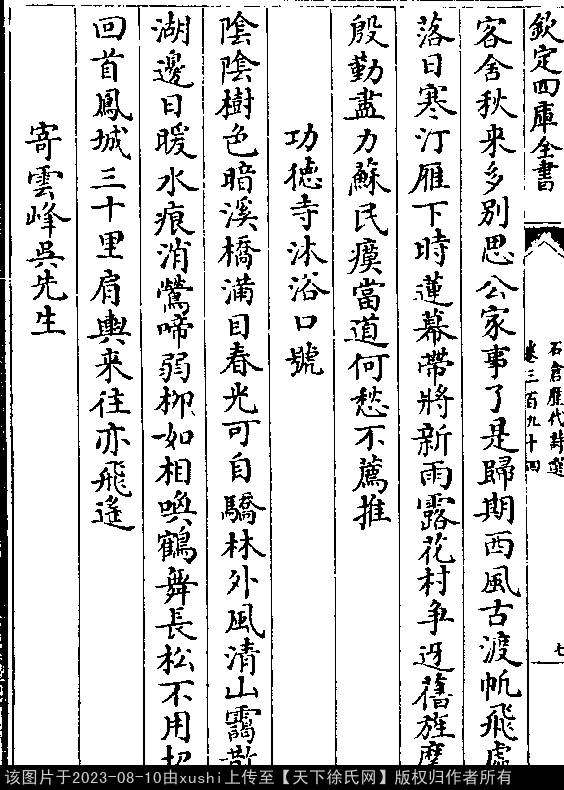 欽定四庫全書
石倉歷代詩選
卷三百九十四
七
客舍秋来多別思公家事了是歸期西風古渡帆飛處
落日寒汀雁下時蓮幕帶將新雨露花村争迓舊旌麾
殷勤盡力蘇民瘼當道何愁不薦推
功徳寺沐浴口號
陰陰樹色暗溪橋滿目春光可自驕林外風清山靄散
湖邊日暖水痕消鶯啼弱柳如相喚鶴舞長松不用招
回首鳳城三十里肩輿来往亦飛遙
寄雲峰吳先生
该图片于2023-08-10由xushi上传至【天下徐氏网】版权归作者所有